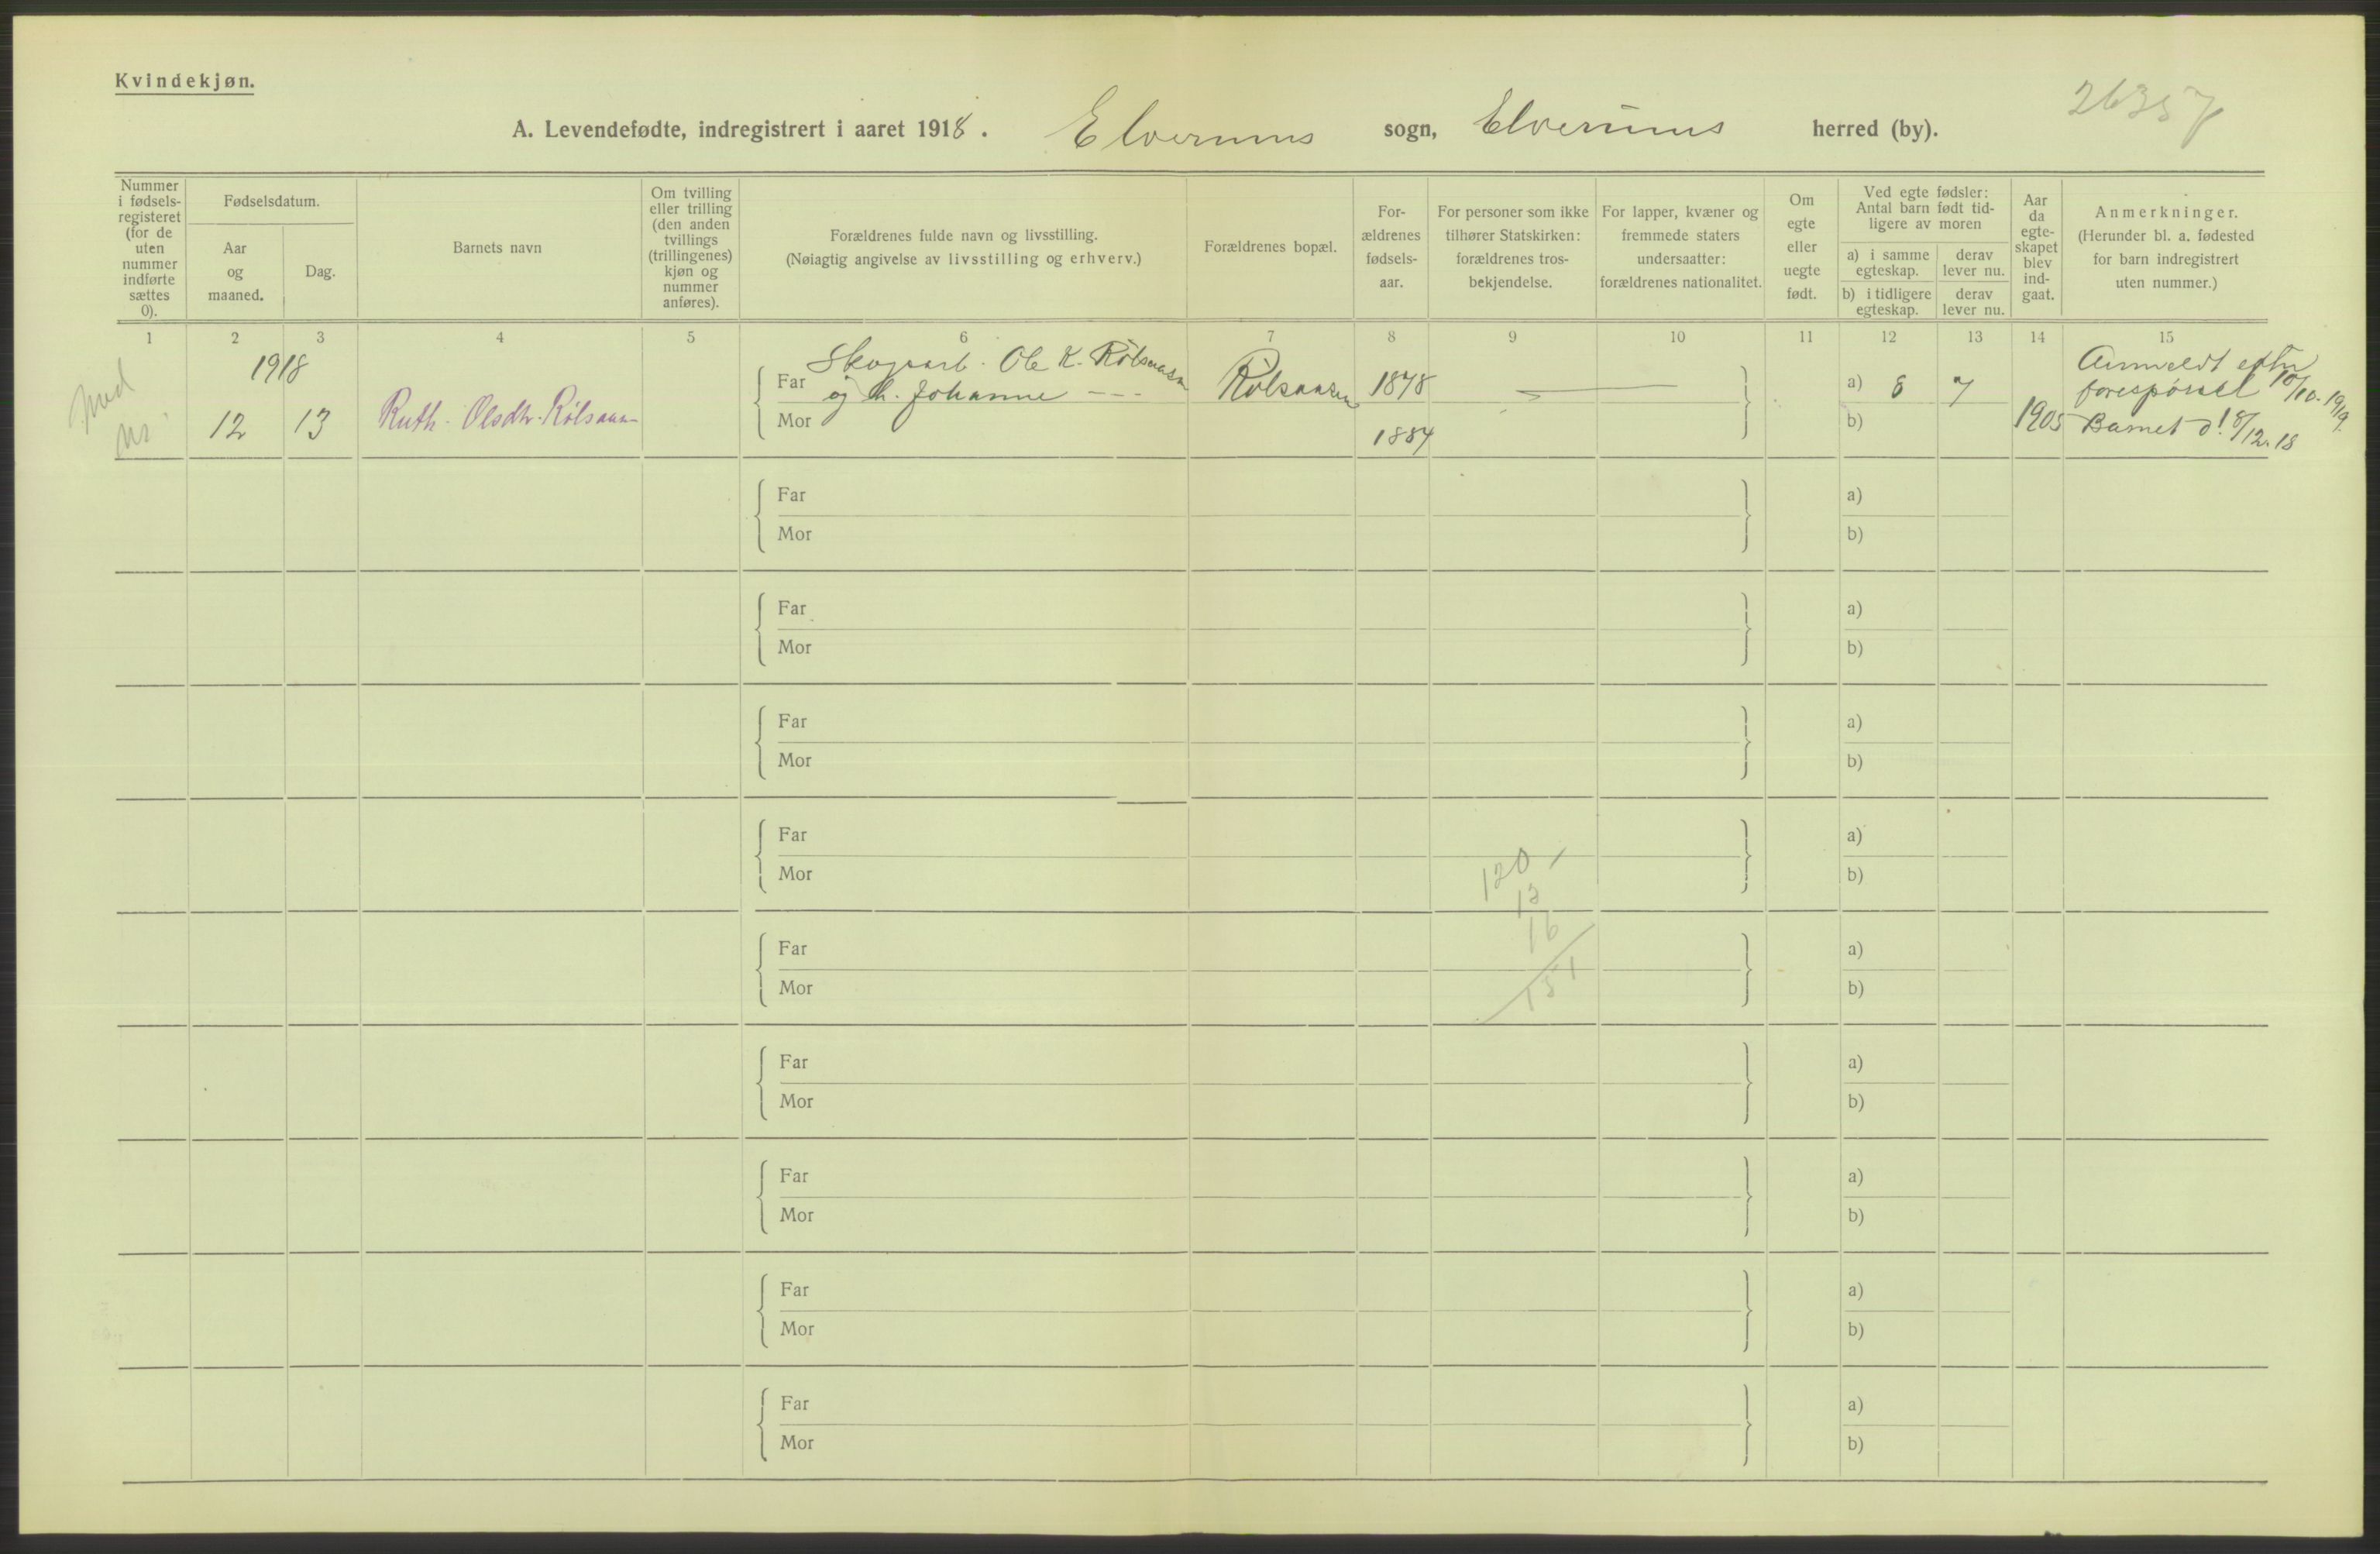 Kvindekjøn.
A. Levendefødte, indregistrert i aaret 1918. Elverums sogn, Elverums herred (by).
26357
Nummer i fødsels-registeret (for de uten nummer indførte sættes 0).
Fødselsdatum.
Aar og maaned.
Dag.
Barnets navn
Om tvilling eller trilling (den anden tvillings (trillingenes) kjøn og nummer anføres).
Forældrenes fulde navn og livsstilling.
(Nøiagtig angivelse av livsstilling og erhverv.)
Forældrenes bopæl.
For-ældrenes fødsels-aar.
For personer som ikke tilhører Statskirken: forældrenes tros-bekjendelse.
For lapper, kvæner og fremmede staters undersaatter: forældrenes nationalitet.
Om egte eller uegte født.
Ved egte fødsler: Antal barn født tid-ligere av moren
a) i samme egteskap.
derav lever nu.
b) i tidligere egteskap.
derav lever nu.
Aar da egte-skapet blev ind-gaat.
Anmerkninger.
(Herunder bl. a. fødested for barn indregistrert uten nummer.)
1 2 3 4 5 6 7 8 9 10 11 12 13 14 15
1918
12 13
Ruth Olsdtr. Rölsaasen
Far Skogsarb. Ole K. Rölsaasen
Mor og h. Johanne - - -
Rölsaasen
1878
1884
a) 8 7
b)
1905
Anmeldt efter
forespörsel 10/10. 1919.
Barnet d! 8/12. 18
Far a)
Mor b)
Far a)
Mor b)
Far a)
Mor b)
Far a)
Mor b)
120
16
151
Far a)
Mor b)
Far a)
Mor b)
Far a)
Mor b)
Far a)
Mor b)
Far a)
Mor b)